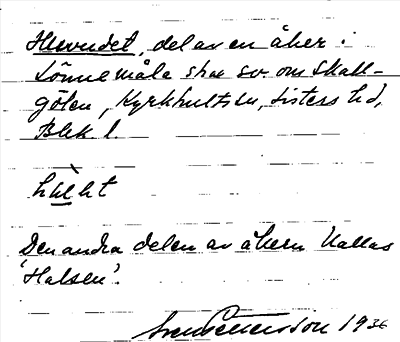 Huvudet, del av en åker i
Lönnemåla strax sv om Skall-
gölen, Kyrkhults sn, Listers hd,
Blek l.
Den andra delen av åkern kallas
'Halsen'.
Sven Petersson 1936